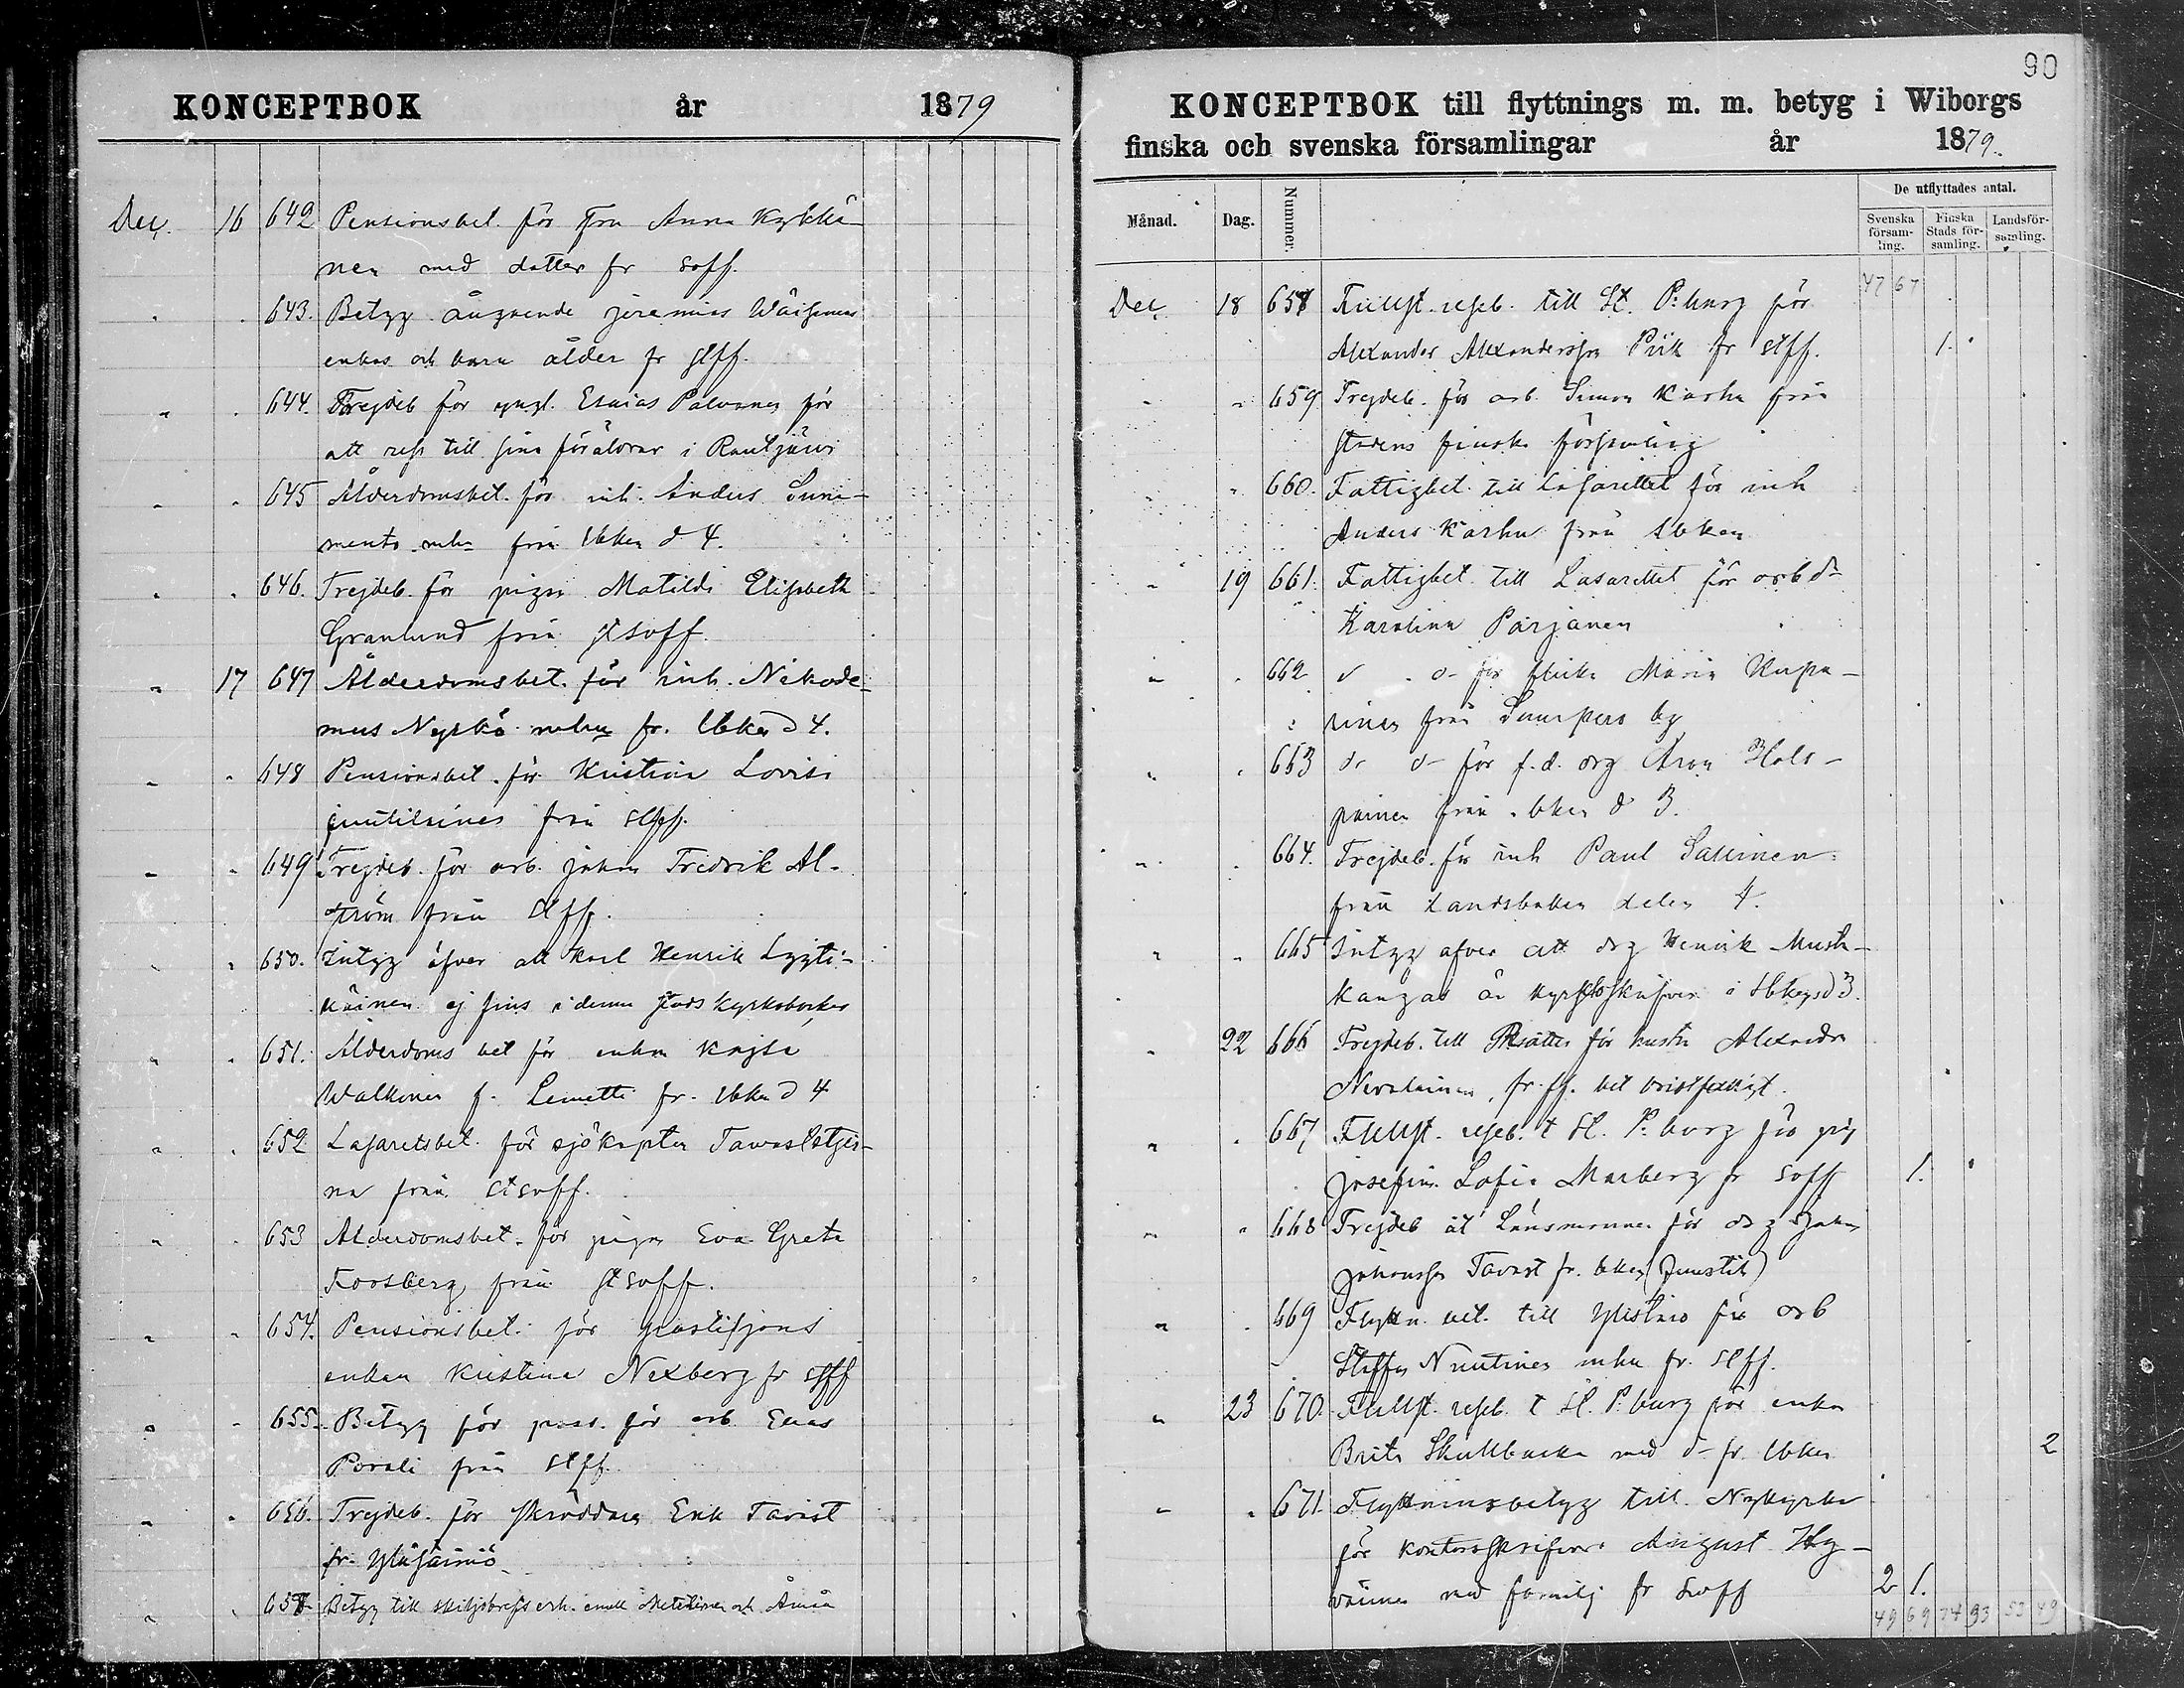 KONCEPTBOK år 1879
Dec. 16 642 Pensionsbet. för Fru Anna Kykkä-
nen med dotter fr soff.
" . 643. Betyg angående Jeremias Wäisenens
enkas och barn ålder fr stff.
" . 644. Frejdeb för yngl. Esaias Palvanen för
att resa till sina föräldrar i Rautjärvi
" " 645 Ålderdomsbet. för inh. Anders Suni-
mento mhu från lbken d 4.
" . 646. Frejdeb. för pigan Matilda Elisabeth
Granlund från stsoff.
" 17 647 Ålderdomsbet. för inh. Nikode-
mus Nyrkö mhu fr. lbken d 4.
" " 648 Pensionsbet. för Kristina Lovisa
från stff.
" " 649 Frejdeb. för arb. Johan Fredrik Al-
ström från stff.
" " 650. Intyg öfver att Karl Henrik Lyyti-
käinen ej fins i denna stads kyrkoböcker
" . 651. Ålderdoms bet för enkan Kajsa
Walkonen f. Lemetti fr. lbken d 4
" . 652 Lasaretsbet. för sjökapten Tavaststjer-
na från stsoff.
" . 653 Alderdomsbet. för pigan Eva Greta
Forsberg från stsoff.
" " 654. Pensionsbet. för
enkan Kristina Nexberg fr stff
" " 655. Betyg för pass. för arb. Elias
Porali från stff.
" " 656. Frejdeb. för skräddare Erik Tavist
fr.
" . 657. Betyg till skiljobrefs erh. emell. och
90
KONCEPTBOK till flyttnings m. m. betyg i Wiborgs
finska och svenska församlingar år 1879.
Månad. Dag. Nummer. De utflyttades antal.
Svenska försam-ling. Finska Stads för-samling. Landsför-samling.
47 67
Dec 18 658 Fullst. reseb. till St. P:burg för
Alexander Alexandersson Piik fr stff. 1.
" " 659 Frejdeb. för arb. Simon Karhu från
stadens finska församling
" " 660. Fattigbet. till Lasarettet för inh
Anders Karhu från lbken
" 19 661. Fattigbet. till Lasarettet för arb d-
Karolina Pärjänen
" . 662 d . o- för flicka Maria Kupa-
rinen från Suurpero by
" . 663 d- o- för f.d. drg Aron Holo-
painen från lbken d 3.
" . 664. Frejdeb. för inh Paul Sallinen
från Landsboken delen 4.
" " 665 Intyg öfver att drg Henrik Must-
kangas är kyrkoskrifven i lbkens d 3.
" 22 666 Frejdeb. till för hustr Alexandra
Nevalainen, fr. ff. bet bristfälligt.
" . 667 Fullst. reseb. t St. P:burg för pig
Josefina Sofia Marberg fr soff 1.
" " 668 Frejdeb åt Länsmannen för drg Johan
Johansson Tavast fr. lbken
" . 669 Flyttn. bet. till Ylistaro för arb
Staffan Nuutinen mhu fr. stff.
" 23 670. Fullst. reseb. t St. P:burg för enkan
Brita Skullbacka med d- fr. lbken 2
" " 671. Flyttninsbetyg till Nykyrka
för kontorsskrifvare August Hy-
vänen med familj fr soff 2 1.
49 69 74 93 53 49